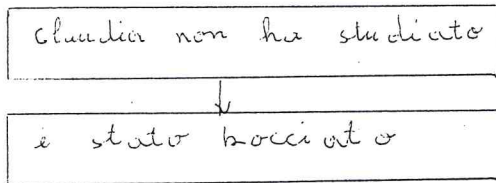 Claudia non ha studiato
è stato bocciato